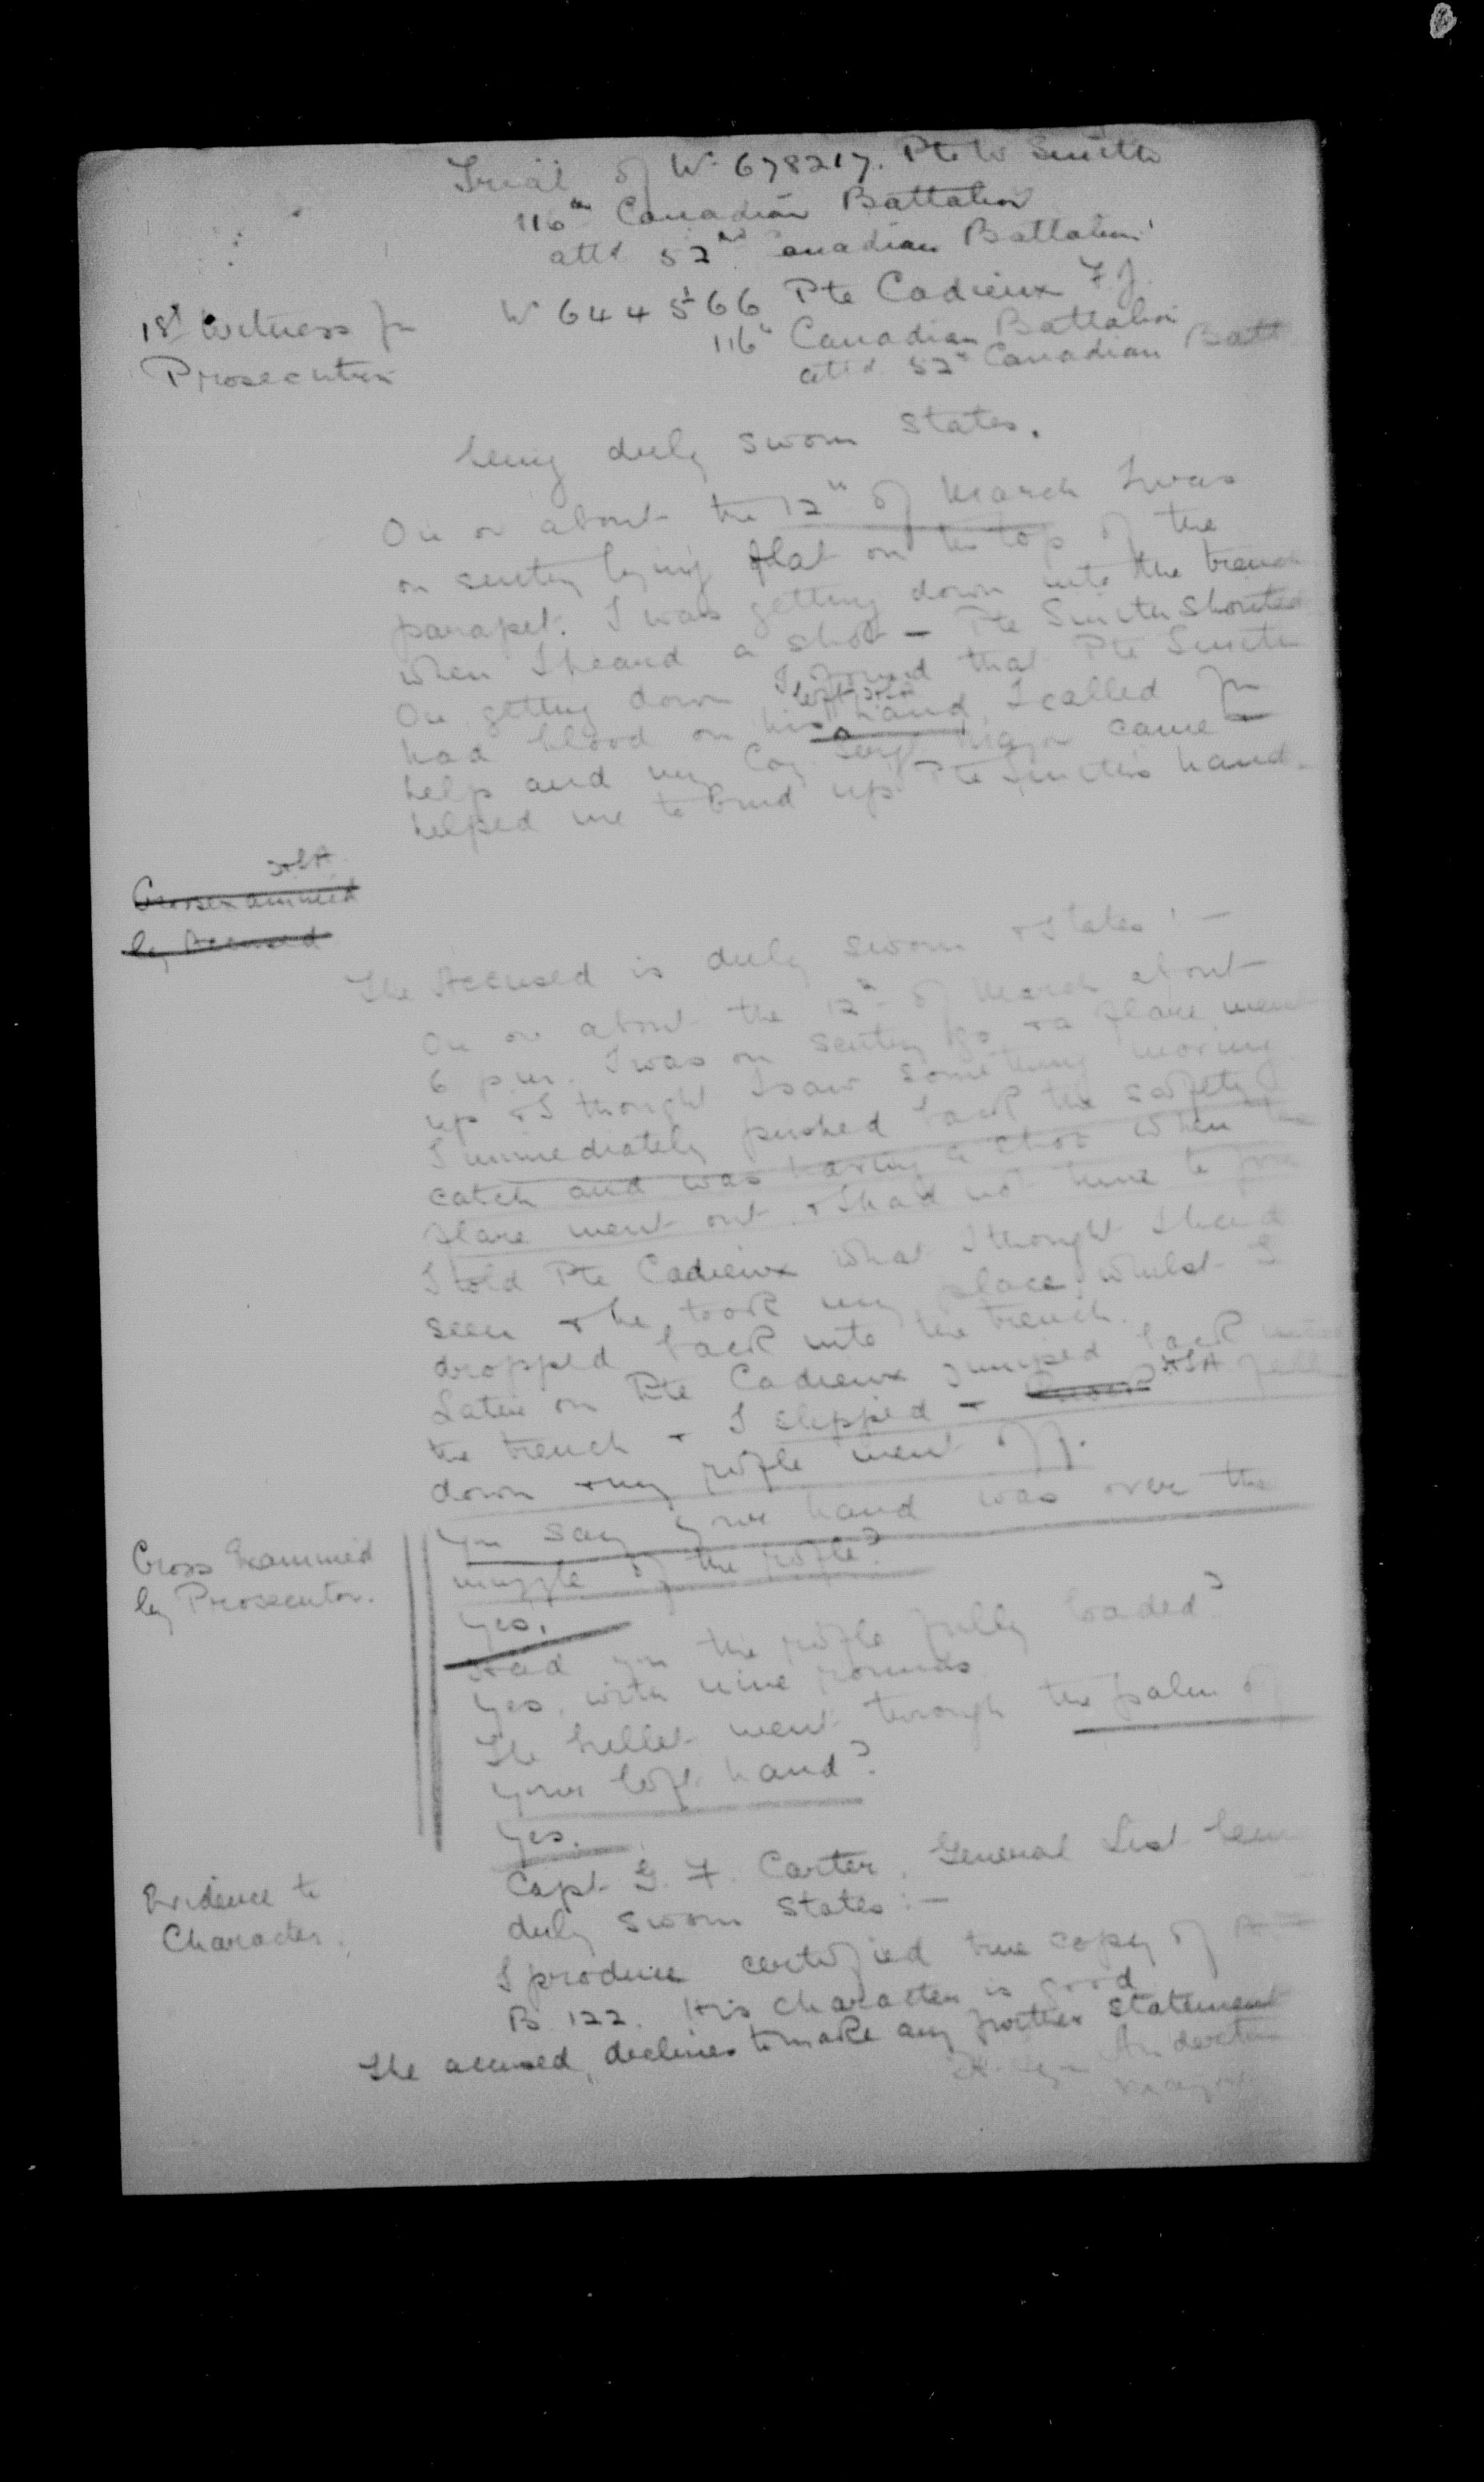 Trial of No 678217. Pte W Smith
116th Canadian Battalion
attd 52nd Canadian Battalion
1st Witness for
Prosecution
No 644566 Pte Cadieux F.J.
116th Canadian Battalion
attd. 52nd Canadian Batt
being duly sworn states.
On or about the 12th of March I was
on sentry lying flat on the top of the
parapet. I was getting down into the trench
when I heard a shot — Pte Smith shouted
On getting down I found that Pte Smith
had blood on his left hand. I called for
help and my Coy Sergt Major came &
helped me to bind up Pte Smith's hand.
Cross examined
by Accused
The Accused is duly sworn & states :—
On or about the 12th of March about
6 p.m. I was on sentry go & a flare went
up & I thought I saw something moving
I immediately pushed back the safety
catch and was having a shot when the
flare went out & I had not time to fire
I told Pte Cadieux what I thought I had
seen & he took my place whilst I
dropped back into the trench.
Later on Pte Cadieux jumped back into
the trench & I slipped & fell
down & my rifle went off.
Cross Examined
by Prosecutor.
You say your hand was over the
muzzle of the rifle?
Yes.
Had you the rifle fully loaded?
Yes, with nine rounds
The bullet went through the palm of
your left hand?
Yes.
Evidence to
Character.
Capt. G. F. Carter, General List
duly sworn states :—
I produce certified true copy of
B. 122. His character is good
The accused, declines to make any further statement